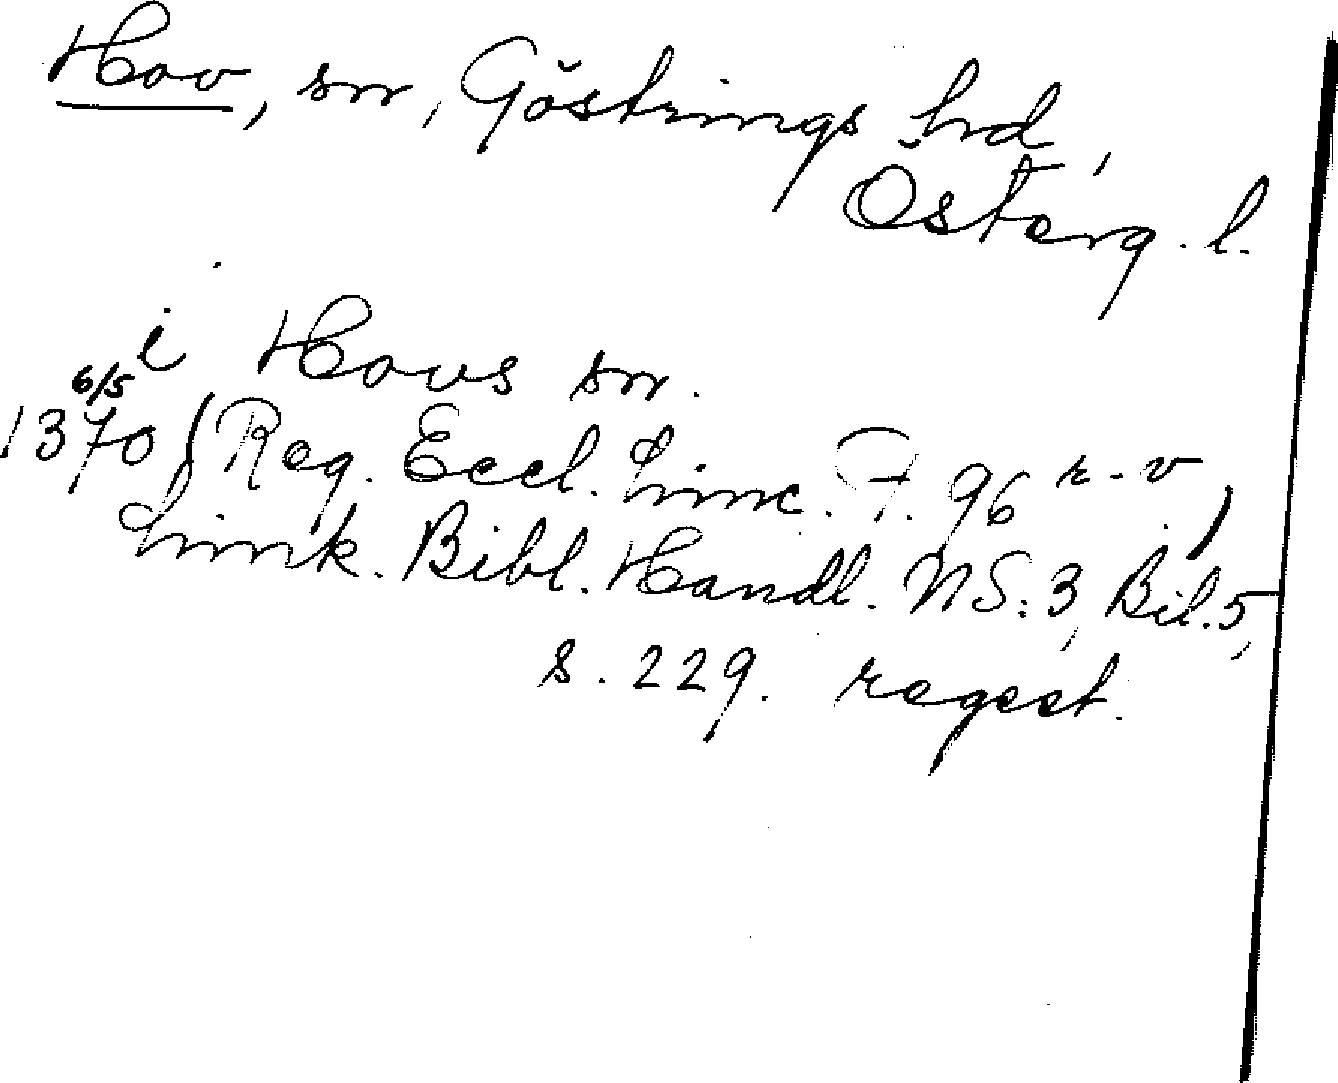 Hov, sn, Göstrings hd,
Österg. l.
i Hovs sn.
1370 6/5 (Reg. Eccl. Linc. F. 96 r-v)
Link. Bibl. Handl. NS: 3, Bil. 5,
s. 229. regest.